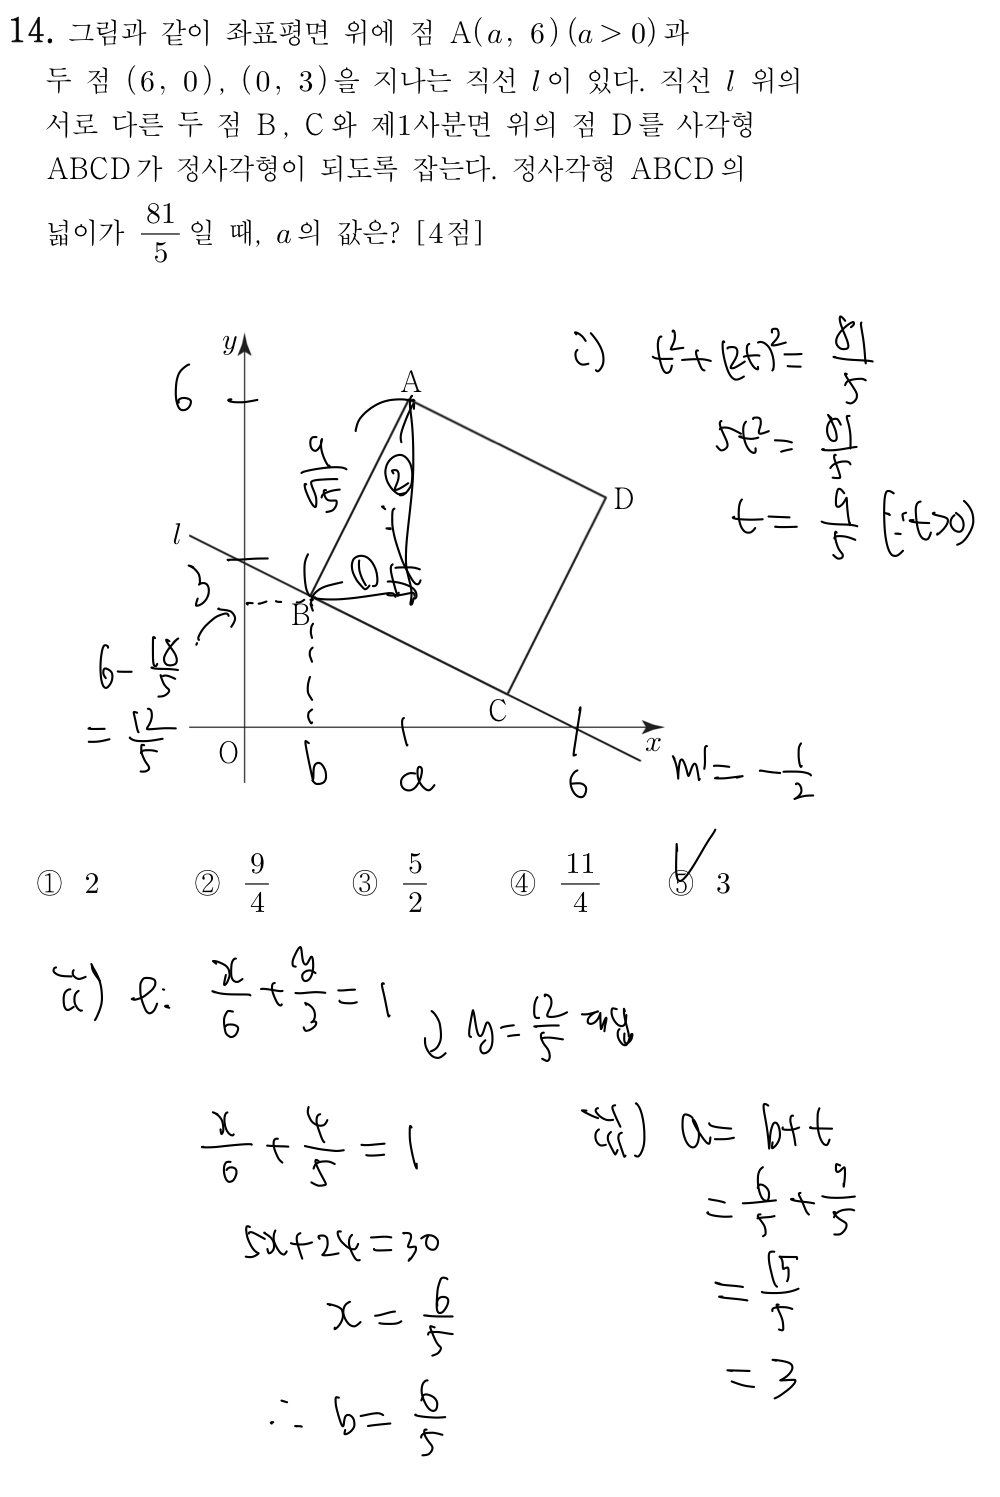 14. 그림과 같이 좌표평면 위에 점 A(a, 6)(a>0)과
두 점 (6, 0), (0, 3)을 지나는 직선 l이 있다. 직선 l 위의
서로 다른 두 점 B, C와 제1사분면 위의 점 D를 사각형
ABCD가 정사각형이 되도록 잡는다. 정사각형 ABCD의
넓이가 81/5 일 때, a의 값은? [4점]
i) t²+(2t)²= 81/5
5t²= 81/5
t= 9/5 (∵t>0)
y
6
A
9/√5
②
D
l
3
①
B
6- 18/5
= 12/5
C
O
b
a
6
x
m= -1/2
① 2 ② 9/4 ③ 5/2 ④ 11/4 ⑤ 3
ii) l: x/6 + y/3 = 1
y= 12/5
x/6 + 4/5 = 1
5x+24=30
x= 6/5
∴ b= 6/5
iii) a= b+t
= 6/5 + 9/5
= 15/5
= 3